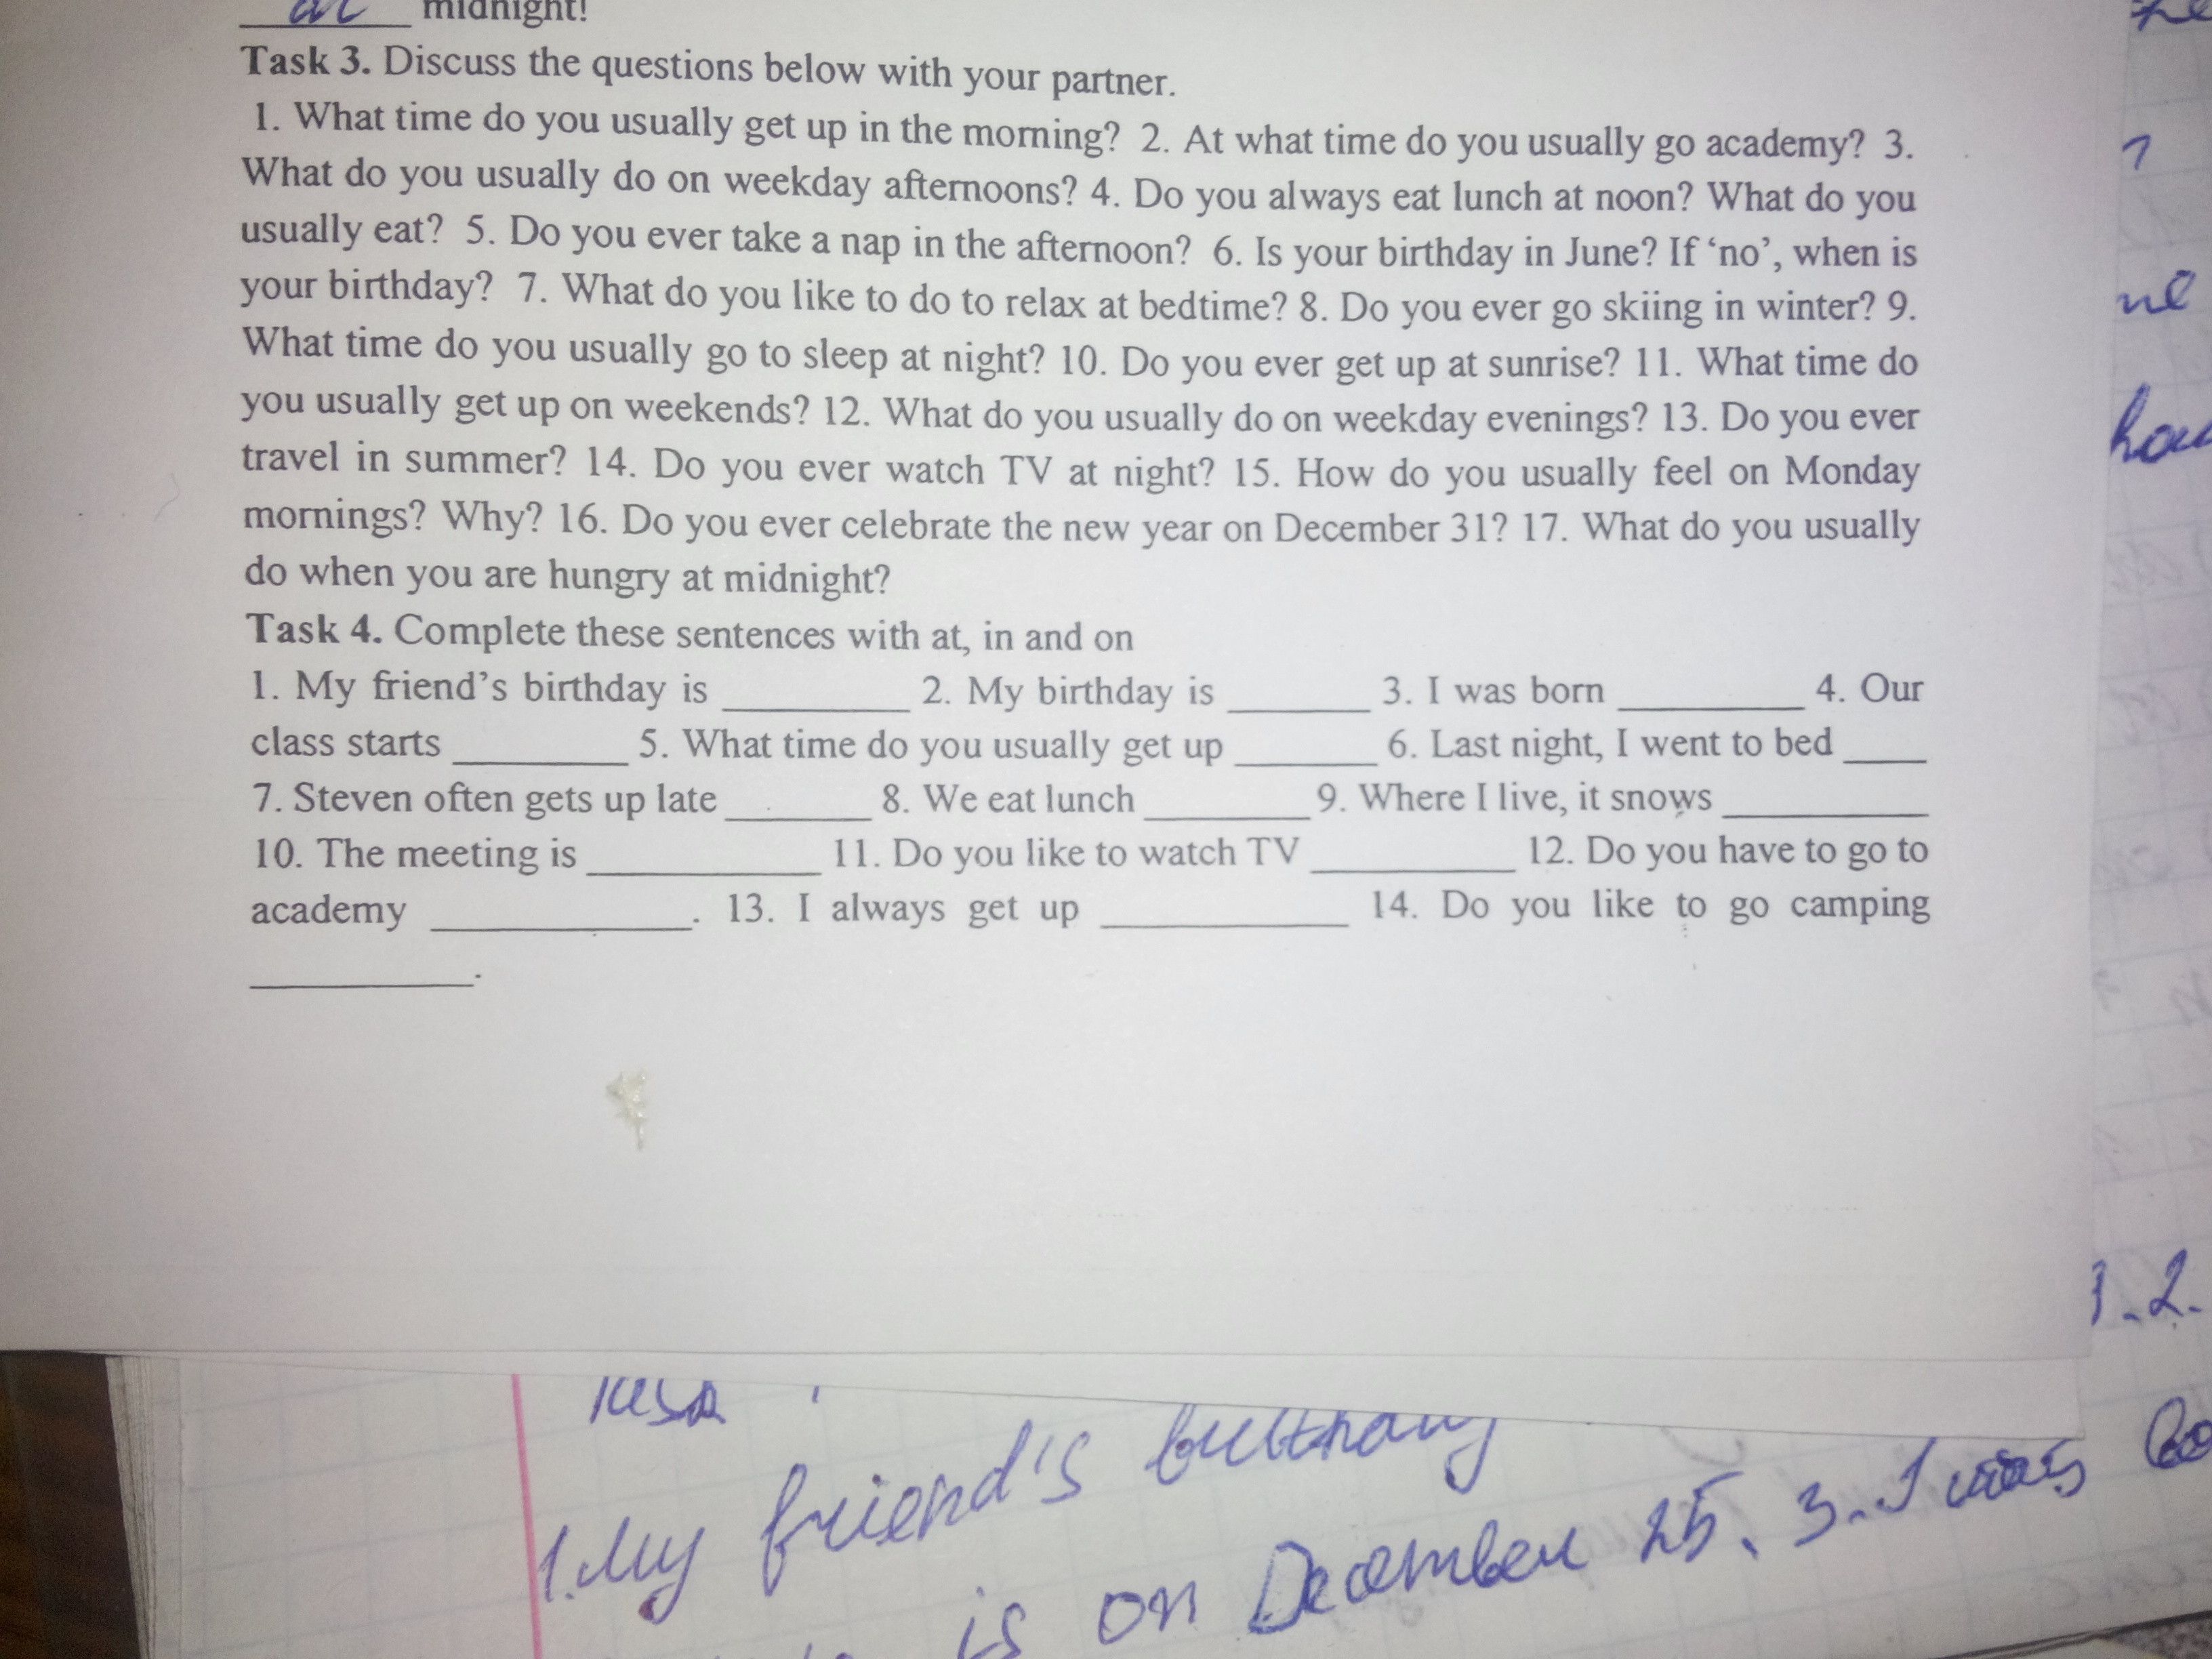 at midnight!
Task 3. Discuss the questions below with your partner.
1. What time do you usually get up in the morning? 2. At what time do you usually go academy? 3.
What do you usually do on weekday afternoons? 4. Do you always eat lunch at noon? What do you
usually eat? 5. Do you ever take a nap in the afternoon? 6. Is your birthday in June? If ‘no’, when is
your birthday? 7. What do you like to do to relax at bedtime? 8. Do you ever go skiing in winter? 9.
What time do you usually go to sleep at night? 10. Do you ever get up at sunrise? 11. What time do
you usually get up on weekends? 12. What do you usually do on weekday evenings? 13. Do you ever
travel in summer? 14. Do you ever watch TV at night? 15. How do you usually feel on Monday
mornings? Why? 16. Do you ever celebrate the new year on December 31? 17. What do you usually
do when you are hungry at midnight?
Task 4. Complete these sentences with at, in and on
1. My friend’s birthday is ________ 2. My birthday is ________ 3. I was born ________ 4. Our
class starts ________ 5. What time do you usually get up ________ 6. Last night, I went to bed ____
7. Steven often gets up late ________ 8. We eat lunch ________ 9. Where I live, it snows ________
10. The meeting is ________ 11. Do you like to watch TV ________ 12. Do you have to go to
academy ________. 13. I always get up ________ 14. Do you like to go camping
________.
1.2.
1. My friend's birthday
is on December 25. 3. I was